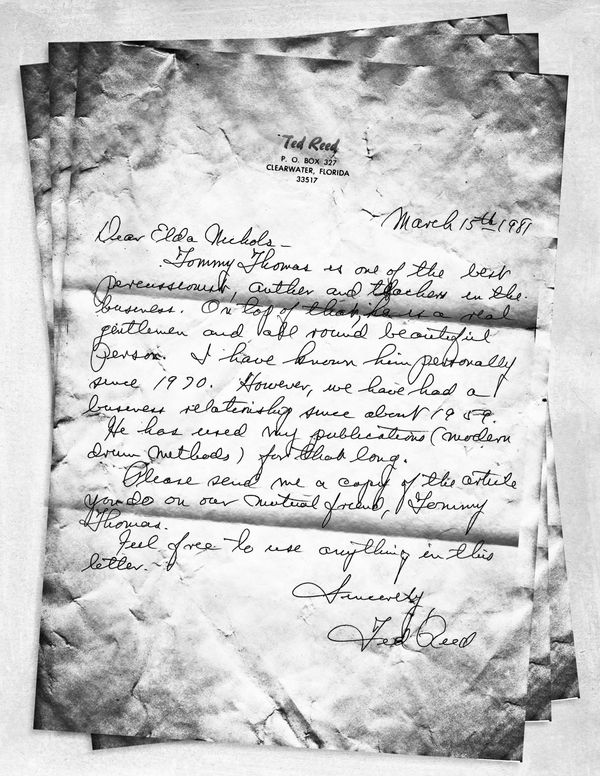 Ted Reed
P. O. BOX 327
CLEARWATER, FLORIDA
33517
March 15th 1981
Dear Elda Nichols-
Tommy Thomas is one of the best
percussionist, auther and teachers in the
business. On top of that, he is a real
gentlemen and all round beautiful
Person. I have known him personally
since 1970. However, we have had a
business relationship since about 1959.
He has used my publications (modern
drum methods) for that long.
Please send me a copy of the article
you do on our mutual friend, Tommy
Thomas.
Feel free to use anything in this
letter.-
Sincerely
Ted Reed